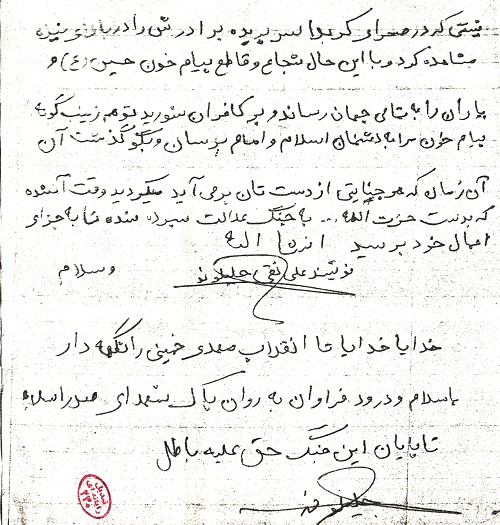 نیستی که در صحرای کربلا سر بریده برادرش را در بالای نیزه
مشاهده کرد و با این حال شجاع و قاطع پیام خون حسین (ع) و
یاران را به تمامی جهان رساند و بر کافران شورید تو هم زینب گونه
پیام خون مرا به دشمنان اسلام و امام برسان و بگو گذشت آن
آن زمان که هر جنایتی از دستتان بر می آید میکردید وقت آنشده
که بدست حزب الله ... به چنگ عدالت سپرده شده تا به جزای
اعمال خود برسید انشا الله
والسلام
نویسنده علی نقی جلیلوند
خدایا خدایا تا انقلاب مهدی خمینی را نگهدار
با سلام و درود فراوان به روان پاک شهدای صدر اسلام
تا پایان این جنگ حق علیه باطل
جلیلوند